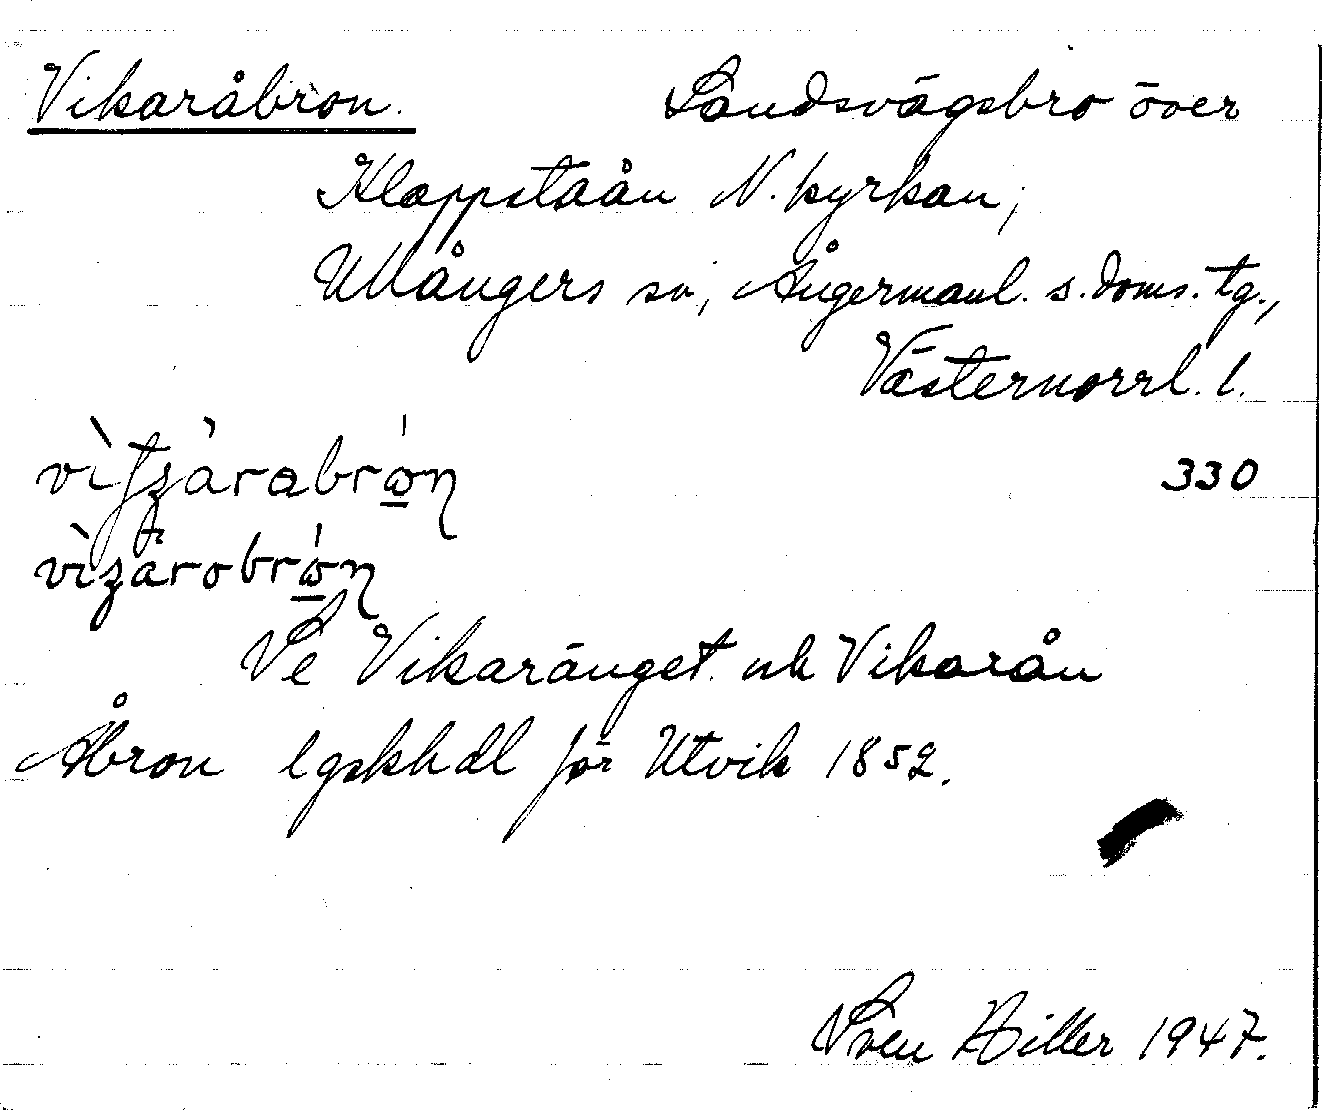 Vikaråbron. Landsvägsbro över
Kläppstaån N. kyrkan,
Ullångers sn, Ångermanl. s. doms. tg.,
Västernorrl. l.
330
Se Vikaränget. och Vikarån
Åbron lgskhdl för Utvik 1852.
Sven Hiller 1947.